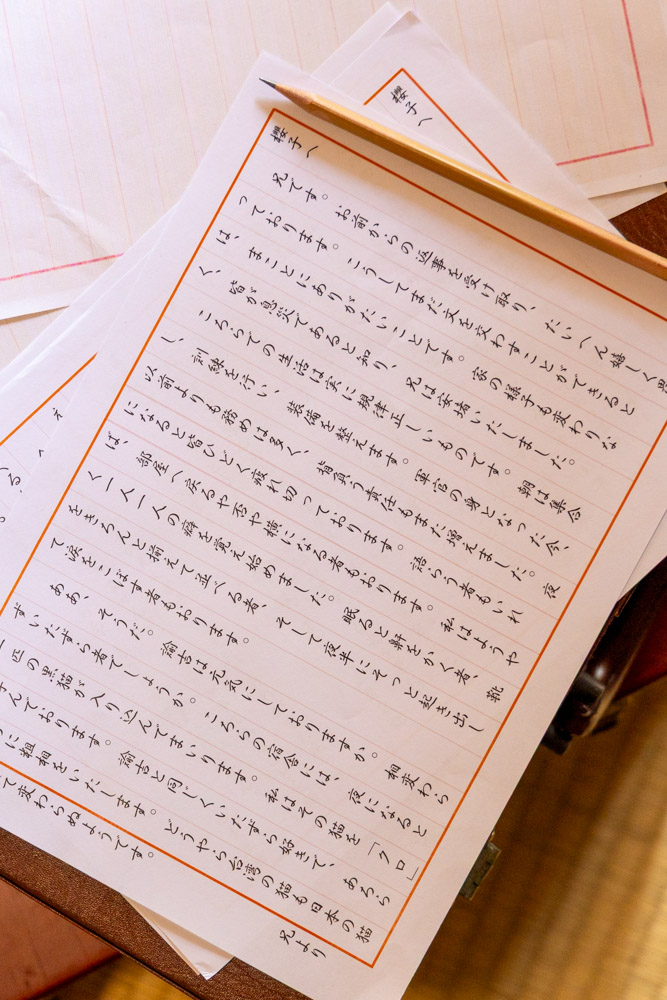 櫻子へ
櫻子へ
兄です。お前からの返事を受け取り、たいへん嬉しく思
っております。こうしてまだ文を交わすことができると
は、まことにありがたいことです。家の様子も変わりな
く、皆が息災であると知り、兄は安堵いたしました。
こちらでの生活は実に規律正しいものです。朝は集合
し、訓練を行い、装備を整えます。軍官の身となった今、
以前よりも務めは多く、背負う責任もまた増えました。夜
になると皆ひどく疲れ切っております。語らう者もいれ
ば、部屋へ戻るや否や横になる者もおります。私はようや
く一人一人の癖を覚え始めました。眠ると鼾をかく者、靴
をきちんと揃えて並べる者、そして夜半にそっと起き出し
て涙をこぼす者もおります。
ああ、そうだ。諭吉は元気にしておりますか。相変わら
ずいたずら者でしょうか。こちらの宿舎には、夜になると
一匹の黒猫が入り込んでまいります。私はその猫を「クロ」
んでおります。諭吉と同じくいたずら好きで、あちら
に粗相をいたします。どうやら台湾の猫も日本の猫
て変わらぬようです。
兄より